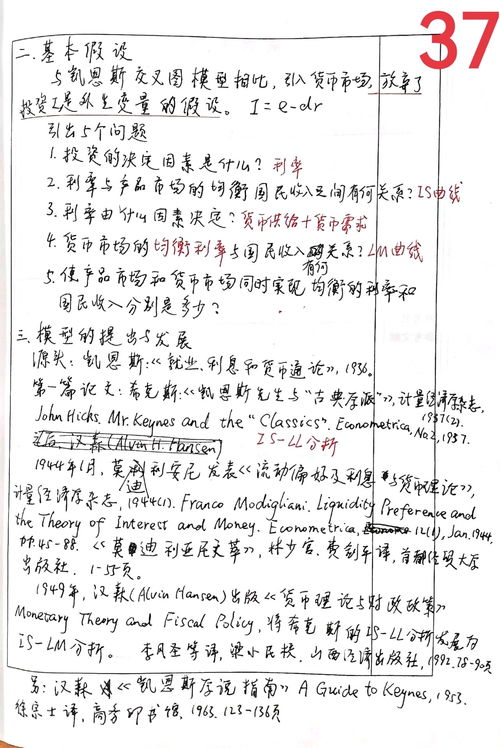 37
二.基本假设
与凯恩斯交叉图模型相比,引入货币市场,放弃了
投资I是外生变量的假设。 I=e-dr
引出5个问题
1.投资的决定因素是什么? 利率
2.利率与产品市场的均衡国民收入之间有何关系? IS曲线
3.利率由什么因素决定? 货币供给+货币需求
4.货币市场的均衡利率与国民收入有何关系? LM曲线
5.使产品市场和货币市场同时实现均衡的利率和
国民收入分别是多少?
三.模型的提出与发展
源头:凯恩斯:《就业、利息和货币通论》,1936.
第一篇论文:希克斯:《凯恩斯先生与“古典学派”》,计量经济学杂志,1937(2).
John Hicks. Mr. Keynes and the "Classics". Econometrica, No.2, 1937.
IS-LL分析
汉森(Alvin H. Hansen)
1944年1月,莫迪利安尼发表《流动偏好及利息与货币理论》,
计量经济学杂志,1944(1). Franco Modigliani. Liquidity Preference and
the Theory of Interest and Money. Econometrica, 12(1), Jan.1944,
pp.45-88.《莫迪利亚尼文萃》,林少宫、费剑平译,首都经贸大学
出版社. 1-55页。
1949年,汉森(Alvin Hansen)出版《货币理论与财政政策》
Monetary Theory and Fiscal Policy, 将希克斯的IS-LL分析发展为
IS-LM分析。 李凤圣等译,梁小民校,山西经济出版社,1992.78-90页
另:汉森《凯恩斯学说指南》A Guide to Keynes, 1953.
徐宗士译,商务印书馆,1963.123-136页